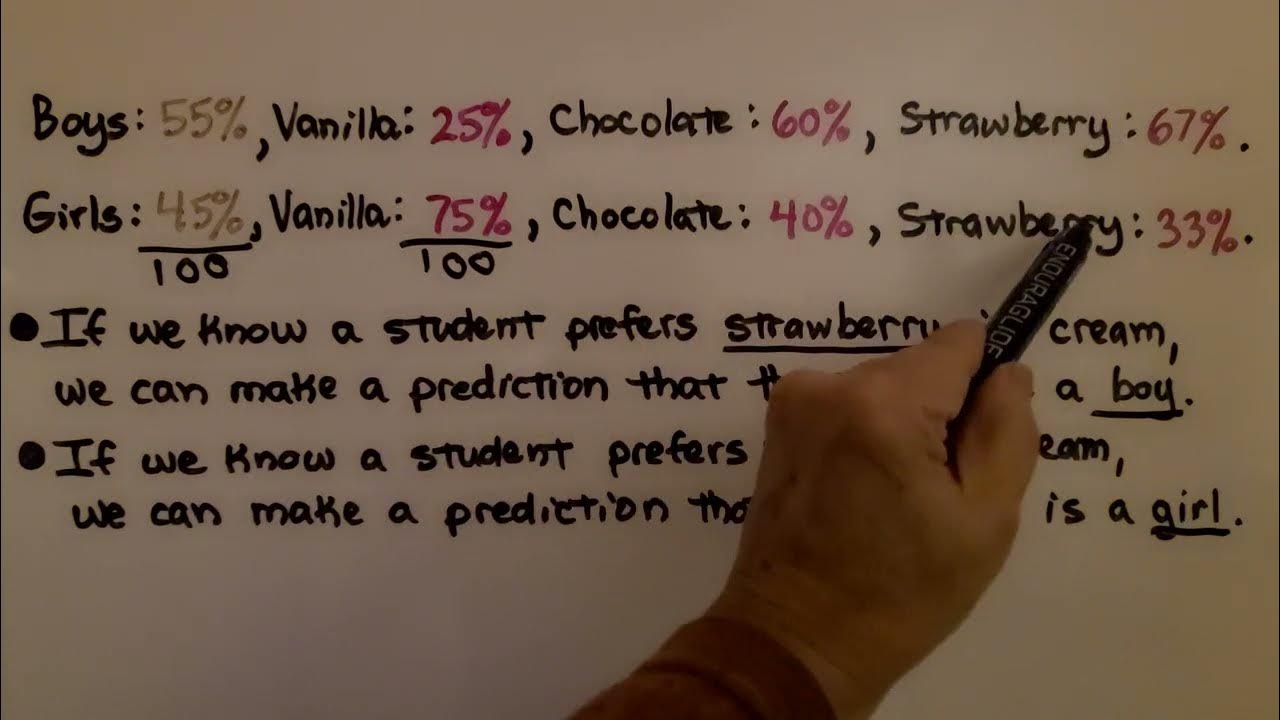 Boys: 55%, Vanilla: 25%, Chocolate: 60%, Strawberry: 67%.
Girls: 45%, Vanilla: 75%, Chocolate: 40%, Strawberry: 33%.
100 100
• If we know a student prefers strawberry cream,
we can make a prediction that a boy.
• If we know a student prefers
we can make a prediction is a girl.
ENDURAGLIDE